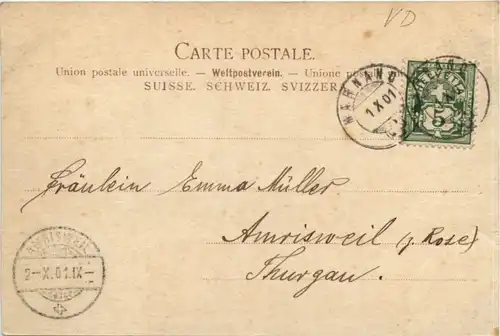 VD
CARTE POSTALE.
Union postale universelle. — Weltpostverein. — Unione
SUISSE. SCHWEIZ. SVIZZERA
MARNAND
1 X 01
HELVETIA
5
Fräulein Emma Müller
Amrisweil (z. Rose)
Thurgau.
AMRISWEIL
2–X.01.IX–